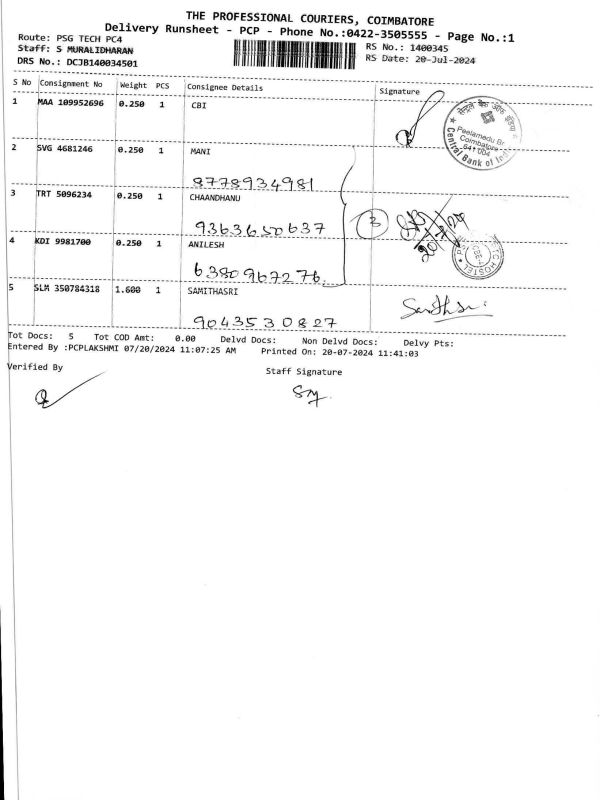 THE PROFESSIONAL COURIERS, COIMBATORE
Delivery Runsheet - PCP - Phone No.:0422-3505555 - Page No.:1
Route: PSG TECH PC4
RS No.: 1400345
Staff: S MURALIDHARAN
RS Date: 20-Jul-2024
DRS No.: DCJB140034501
S No Consignment No Weight PCS Consignee Details Signature
1 MAA 109952696 0.250 1 CBI
सेन्ट्रल बैंक ऑफ इंडिया
Peelamedu Br
Coimbatore
641 004
Central Bank of India
2 SVG 4681246 0.250 1 MANI
8778934981
3 TRT 5096234 0.250 1 CHAANDHANU
9363650637
3
20/7/24
4 KDI 9981700 0.250 1 ANILESH
6380967276.
HOSTEL
5 SLM 350784318 1.600 1 SAMITHASRI
Samithasri
9043530827
Tot Docs: 5 Tot COD Amt: 0.00 Delvd Docs: Non Delvd Docs: Delvy Pts:
Entered By :PCPLAKSHMI 07/20/2024 11:07:25 AM Printed On: 20-07-2024 11:41:03
Verified By
Staff Signature